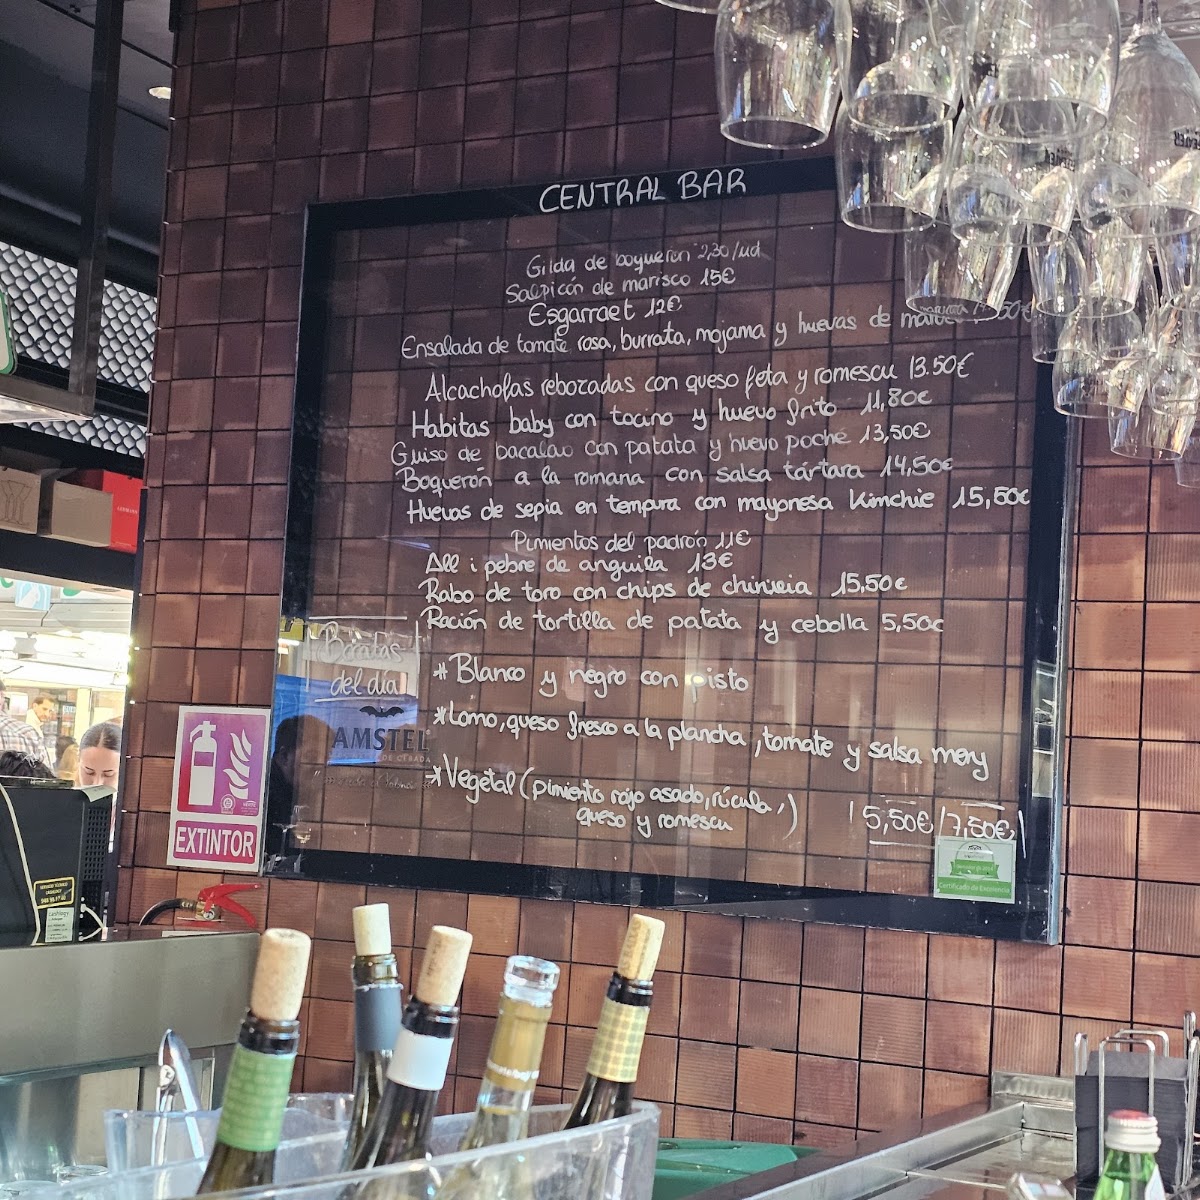 CENTRAL BAR
Gilda de boquerón 2,30/ud
Salpicón de marisco 15€
Esgarraet 12€
Ensalada de tomate rosa, burrata, mojama y huevas de
Alcachofas rebozadas con queso feta y romescu 13.50€
Habitas baby con tocino y huevo frito 11,80€
Guiso de bacalao con patata y huevo poché 13,50€
Boquerón a la romana con salsa tártara 14,50€
Huevas de sepia en tempura con mayonesa Kimchie 15,50€
Pimientos del padrón 11€
All i pebre de anguila 13€
Rabo de toro con chips de chirivia 15.50€
Ración de tortilla de patata y cebolla 5,50€
Bocatas del día
* Blanco y negro con pisto
* Lomo, queso fresco a la plancha, tomate y salsa mery
* Vegetal (pimiento rojo asado, rúcula, queso y romescu)
5,50€/7,50€
AMSTEL
EXTINTOR
Certificado de Excelencia